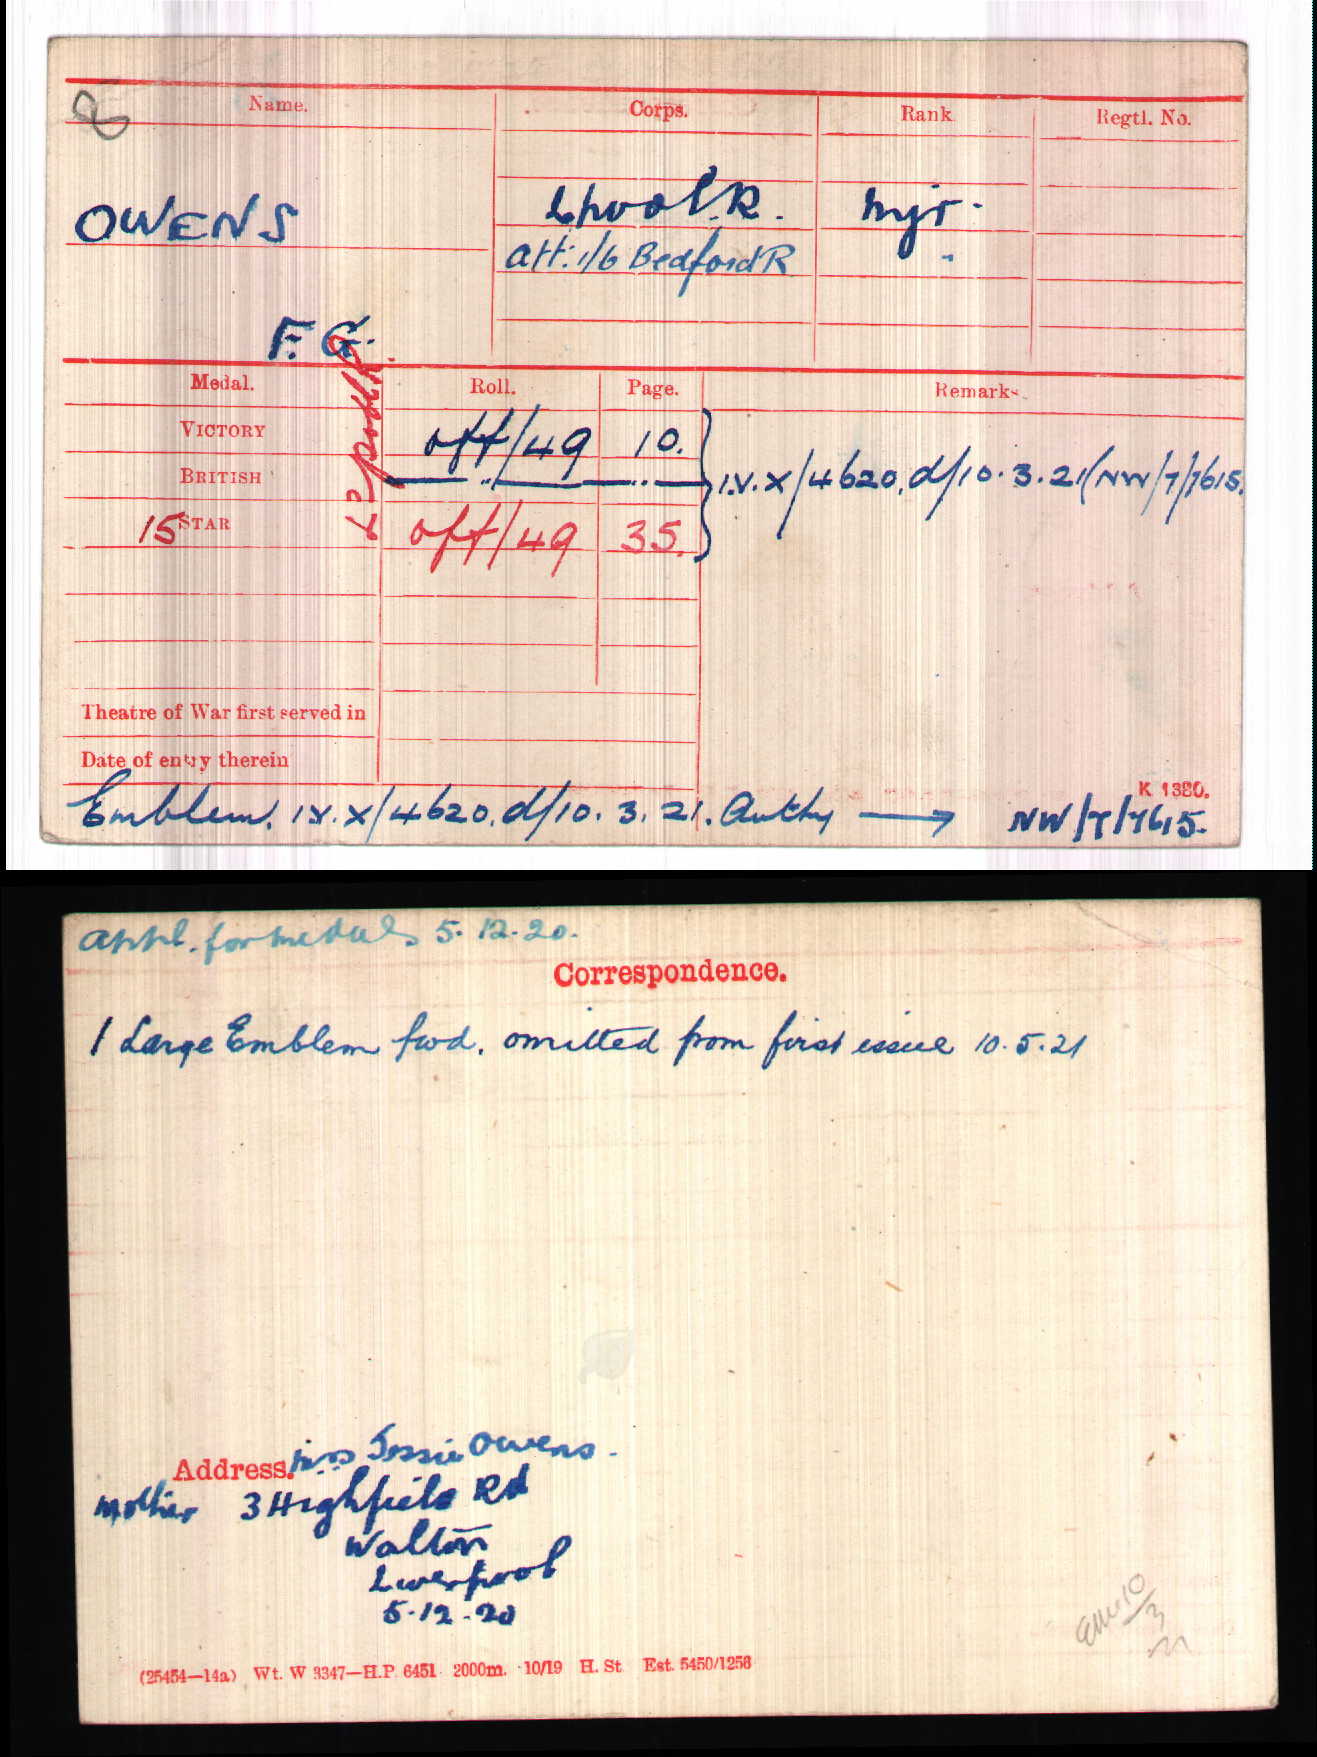 8
Name. Corps. Rank. Regtl. No.
OWENS L'pool. R. Mjr.
att: 1/6 Bedford R
F. G.
Medal. Roll. Page. Remarks.
VICTORY off/49 10.
BRITISH " " I.V.X/4620. d/10.3.21 (NW/7/7615.
15 STAR off/49 35.
Theatre of War first served in
Date of entry therein
K 1380.
Emblem. I.V.X/4620. d/10.3.21. Authy → NW/7/7615.
Appl. for medals 5.12.20.
Correspondence.
1 Large Emblem fwd. omitted from first issue 10.5.21
Address. Mrs Jessie Owens.
Mother 3 Highfield Rd
Walton
Liverpool
5.12.20
(25454—14a) Wt. W 3347—H.P. 6451 2000m. 10/19 H. St Est. 5450/1256